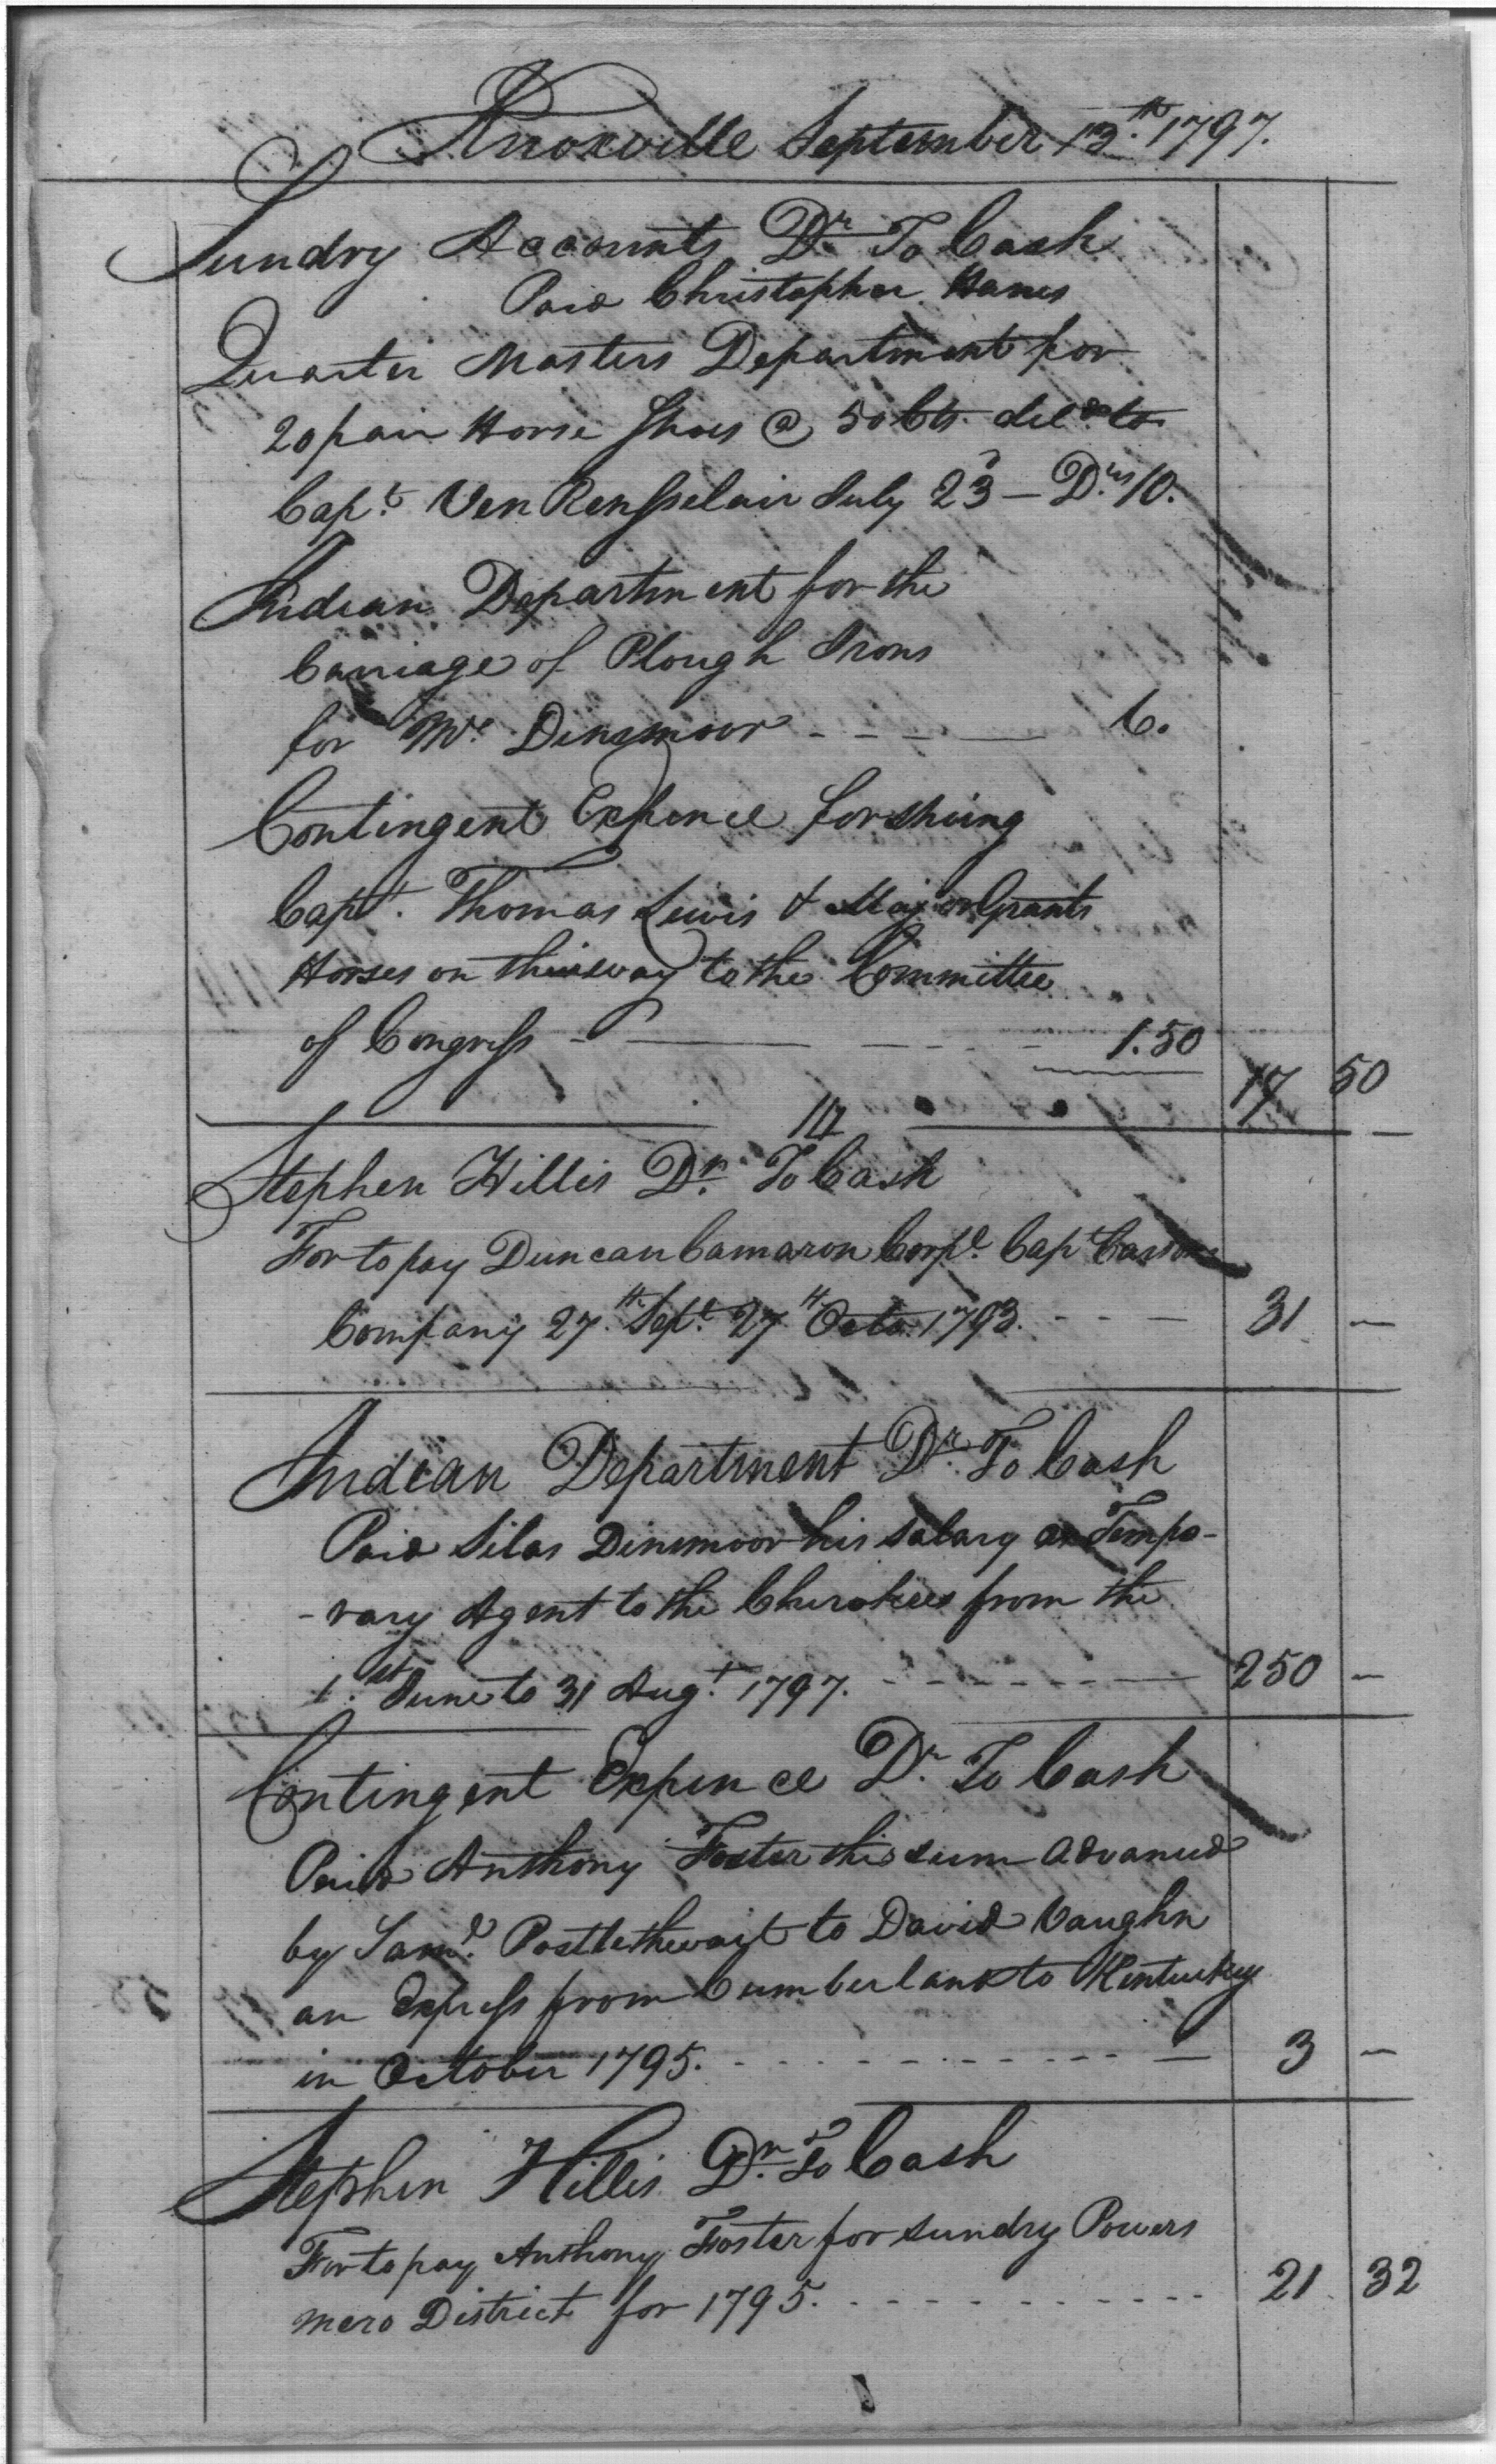 Knoxville September 13th 1797.
Sundry Accounts Dr To Cash
Paid Christopher Hanes
Quarter Masters Department for
20 pair Horse Shoes @ 50 Cts deld to
Capt. Ven Rensselair July 23 — Drs 10.
Indian Department for the
Carriage of Plough Irons
for Mr Dinsmoor - - - — 6.
Contingent Expence for shoing
Capt. Thomas Lewis & Major Grants
Horses on their way to the Committee
of Congress - — - - - 1.50
17 50
14
Stephen Hillis Dr. To Cash
For to pay Duncan Camaron Corpl. Capt
Company 27th Sept. 27th Octo. 1793. - - - 31 —
Indian Department Dr. To Cash
Paid Silas Dinsmoor his salary as Tempo-
-rary Agent to the Cherokees from the
1.st June to 31 Augt. 1797. - - - - - - — 250 —
Contingent Expence Dr. To Cash
Paid Anthony Foster this sum advanced
by Saml. Postlethwayt to David Vaughn
an Express from Cumberland to Kentuckey
in October 1795. - - - - - - - - - - — 3 —
Stephen Hillis Dr. To Cash
For to pay Anthony Foster for sundry Powers
Mero District for 1795. - - - - - - - - - - 21 32